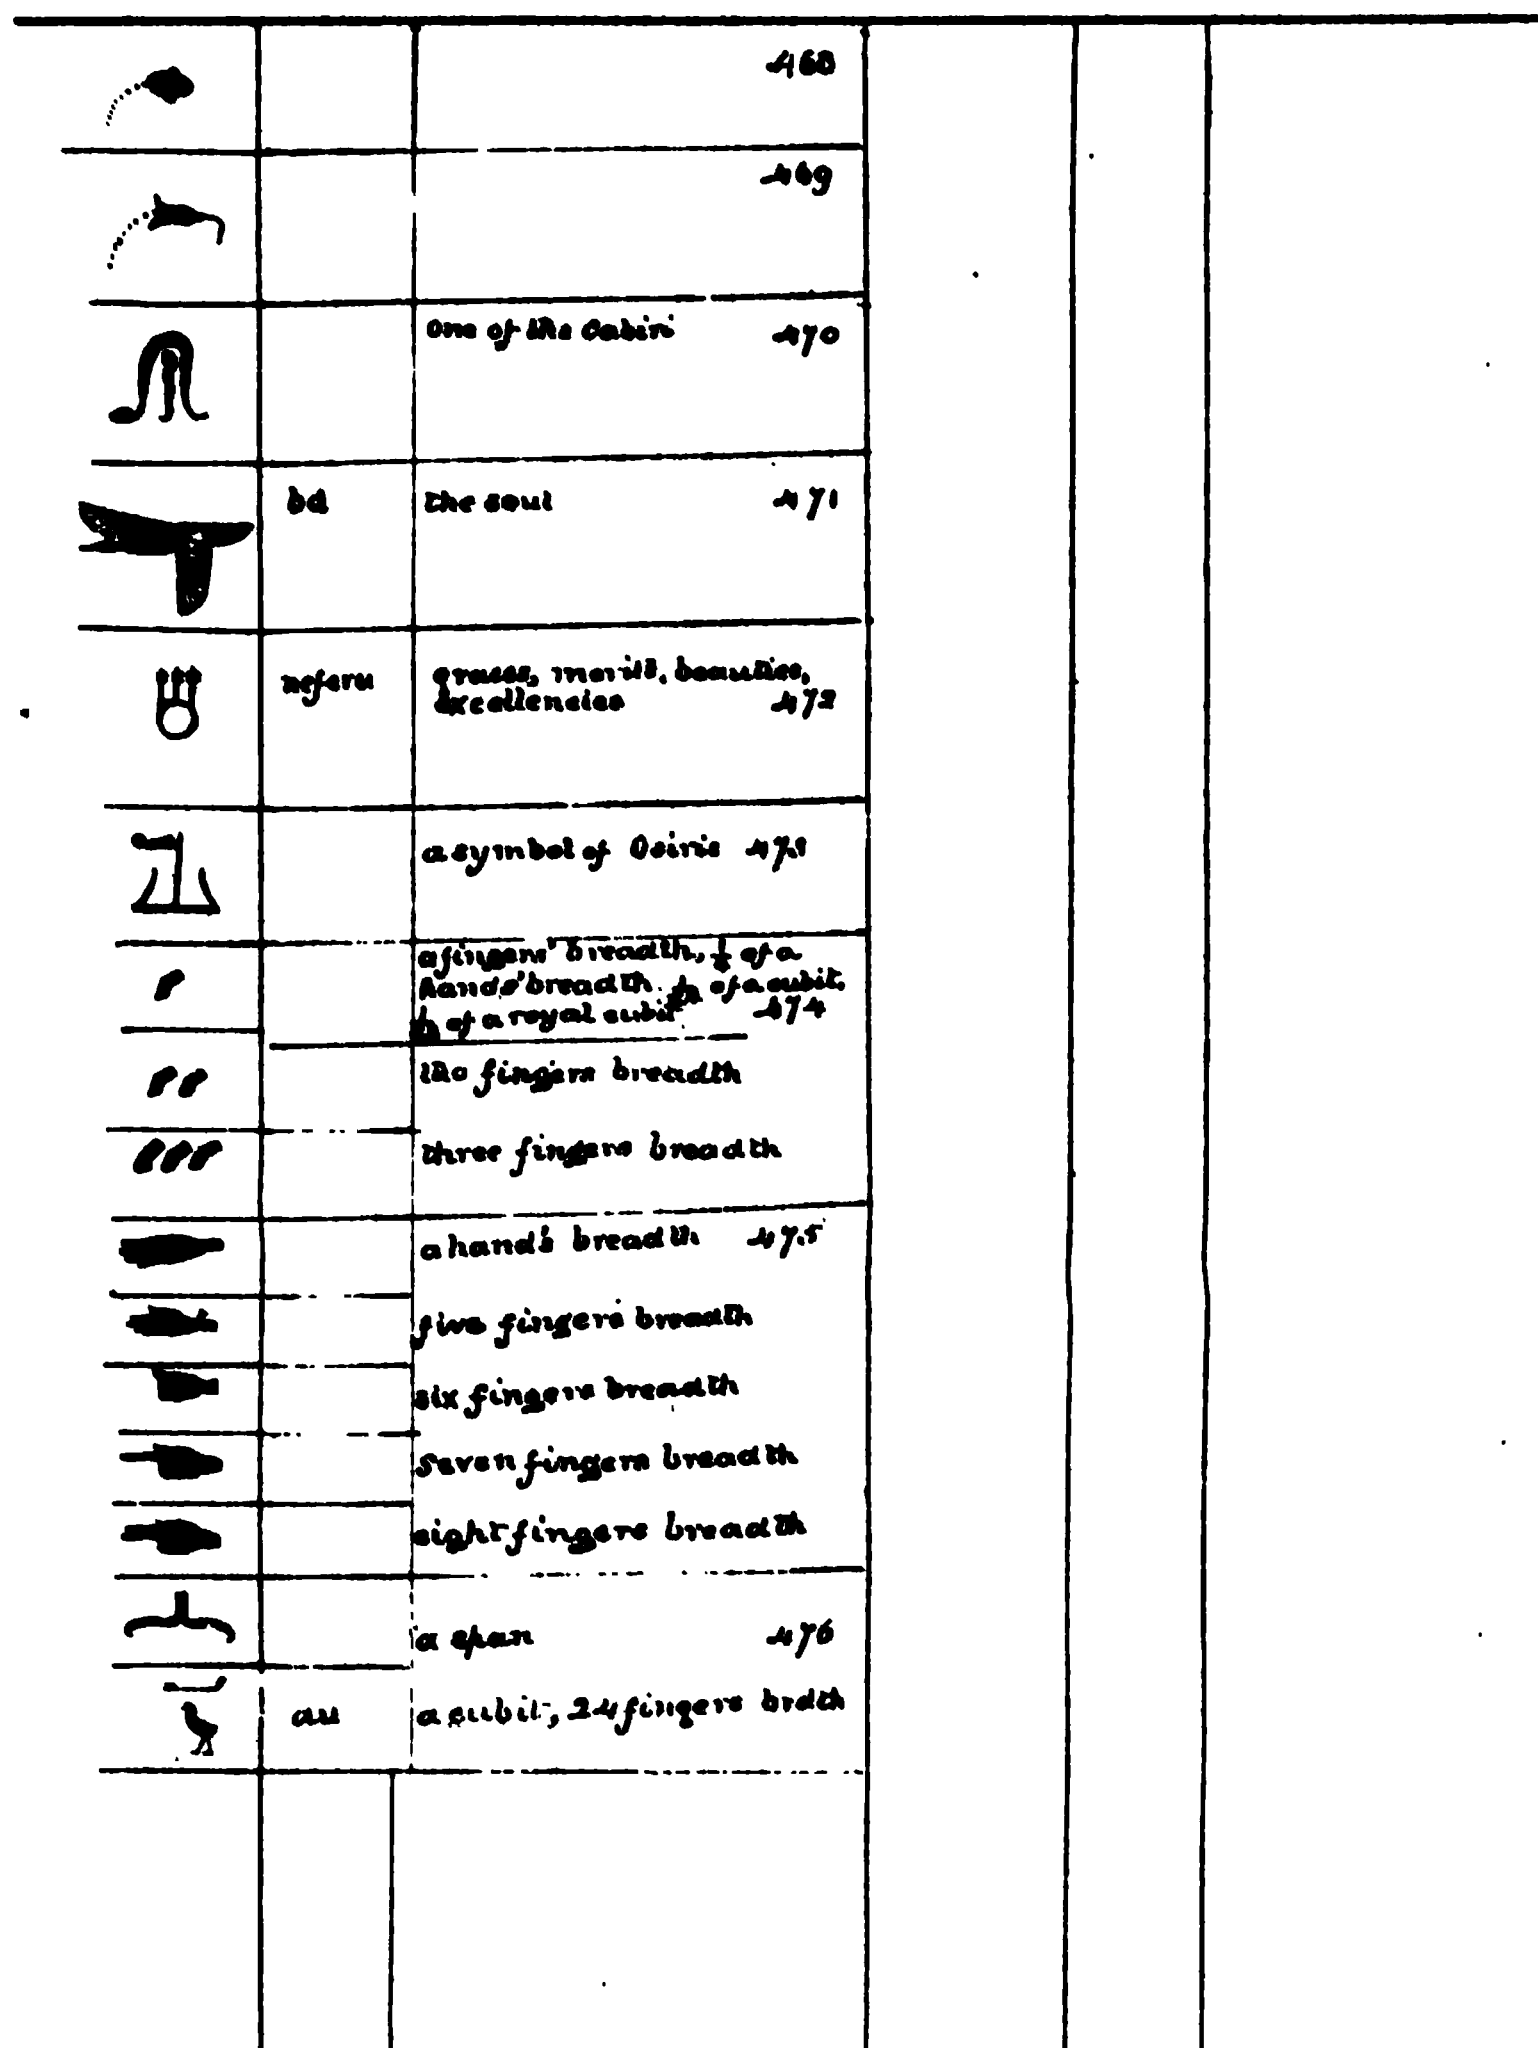 468
469
one of the Cabiri 470
ba the soul 471
neferu graces, merits, beauties,
excellencies 472
a symbol of Osiris 473
a fingers' breadth, ¼ of a
hands' breadth of a cubit,
of a royal cubit 474
two fingers breadth
three fingers breadth
a hand's breadth 475
five fingers breadth
six fingers breadth
seven fingers breadth
eight fingers breadth
a span 476
au a cubit, 24 fingers brdth